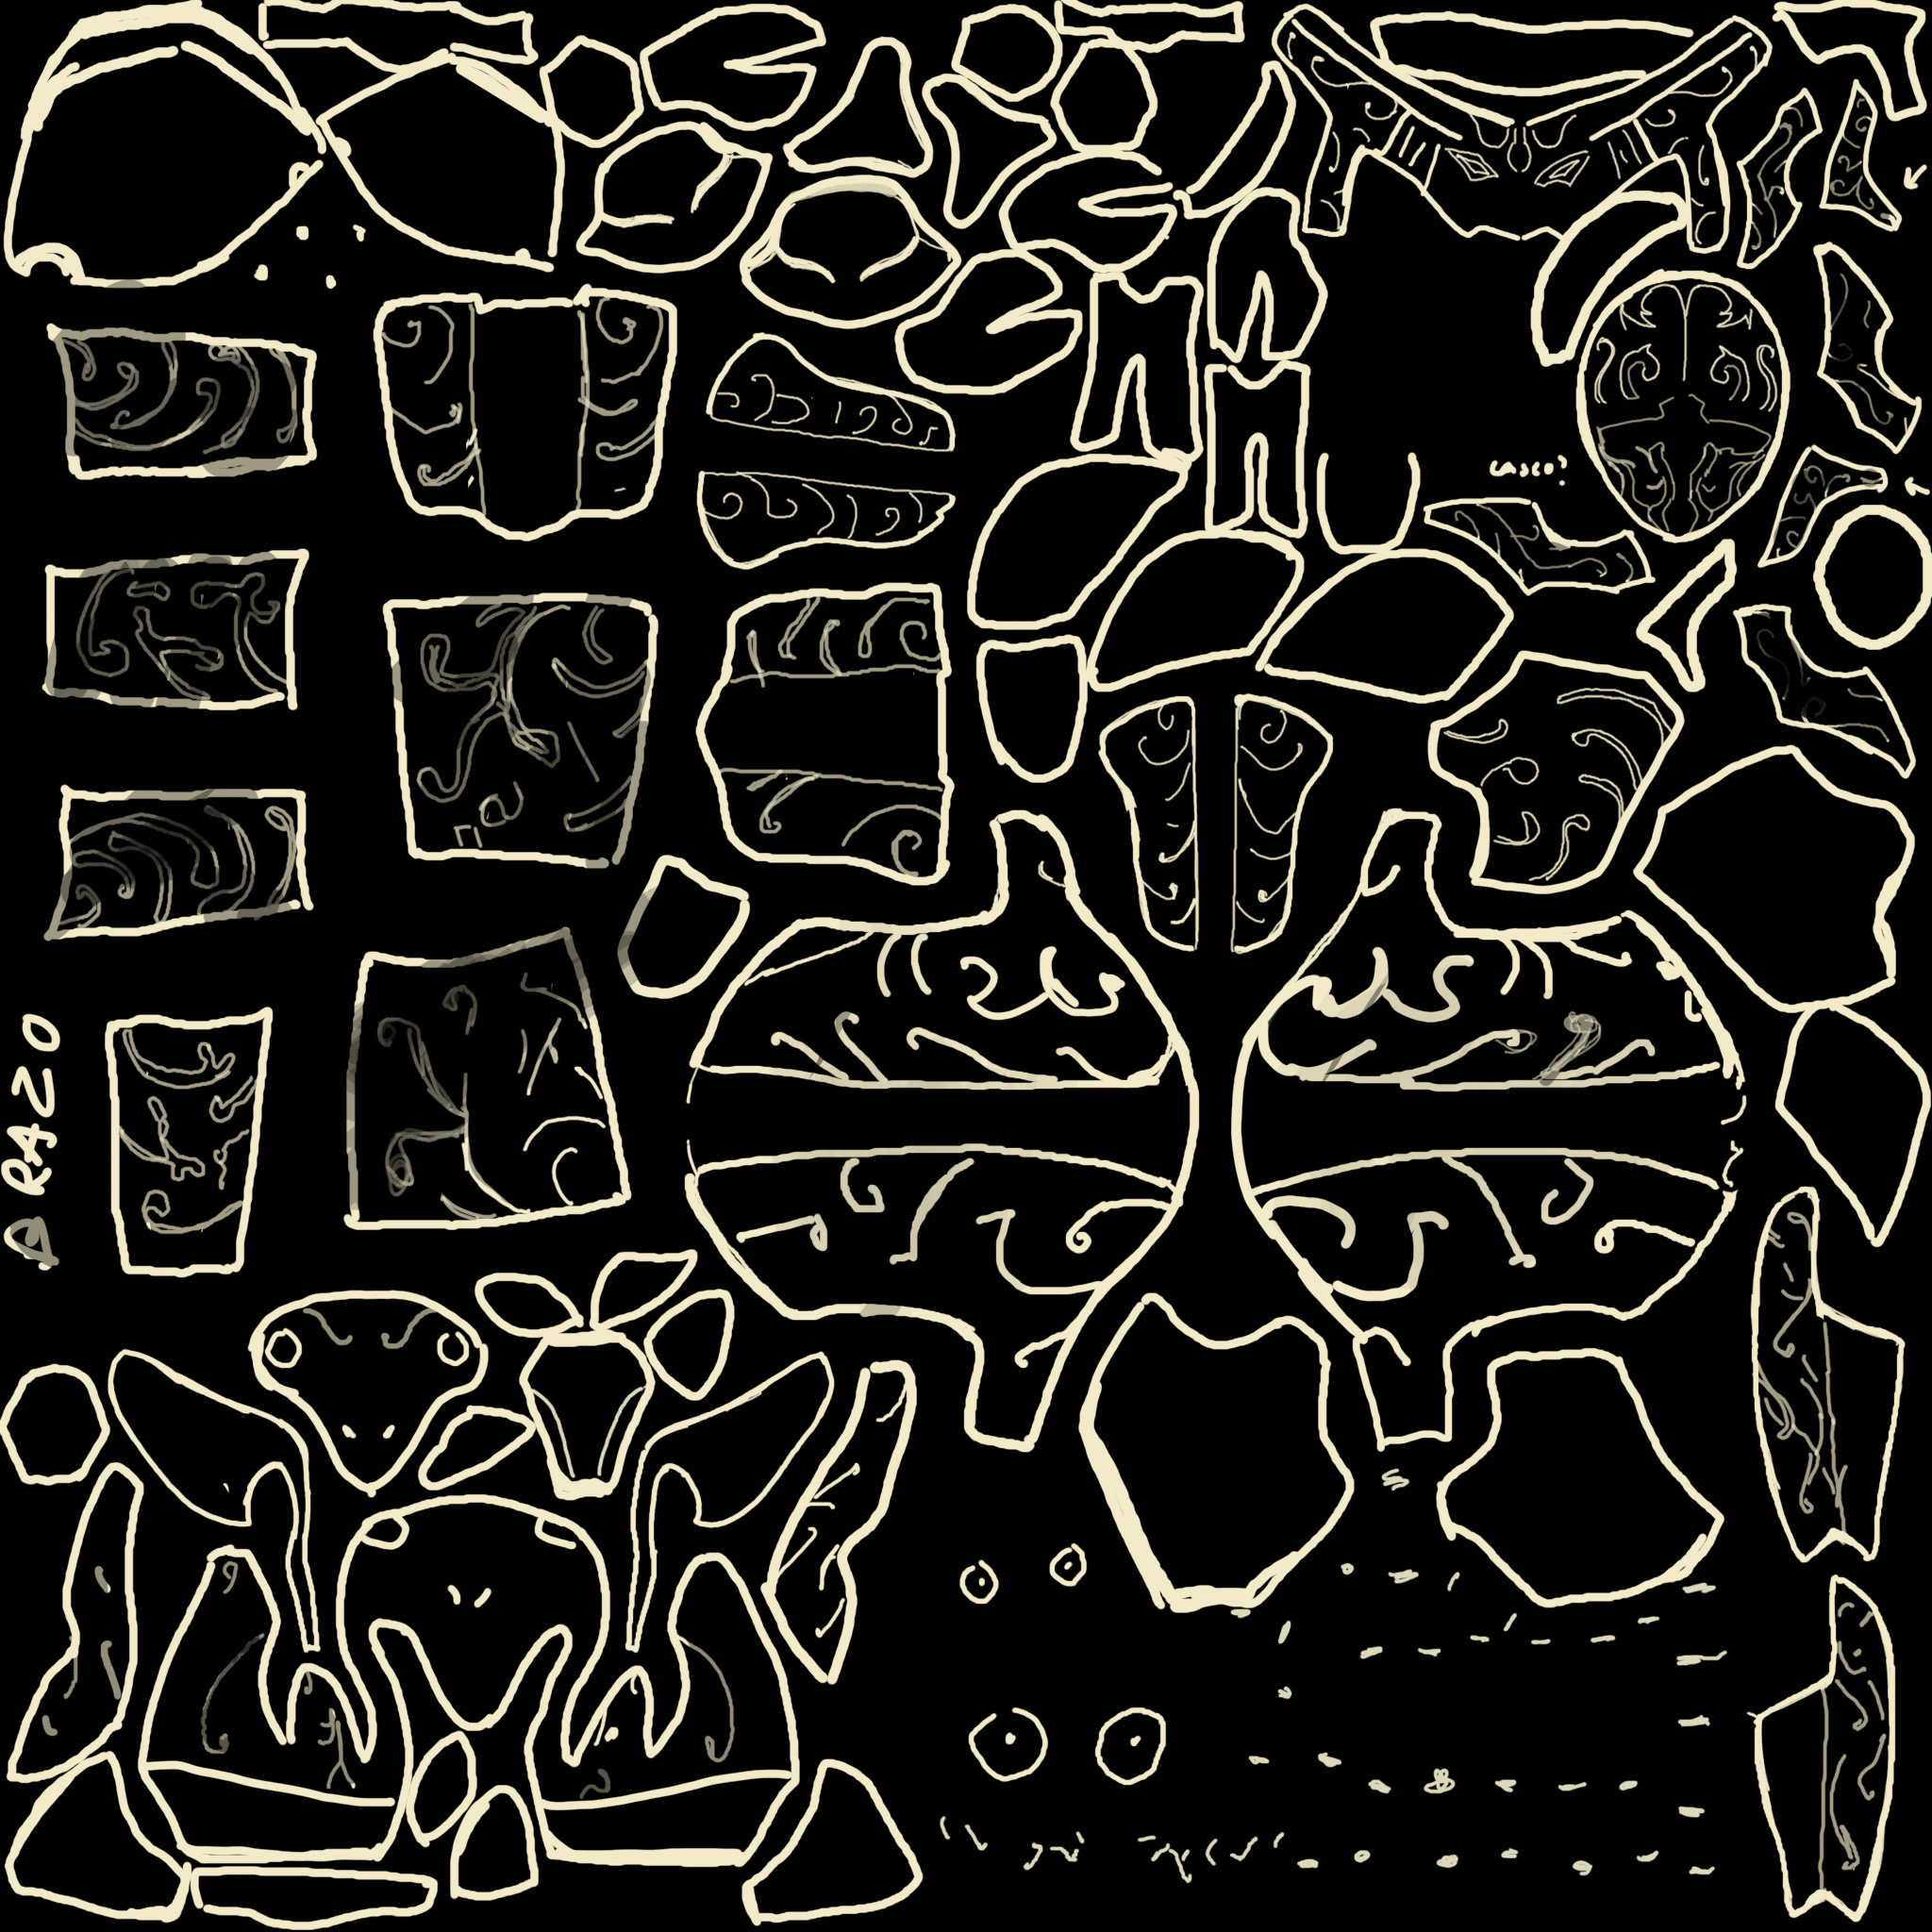 CASCO?
BRAZO